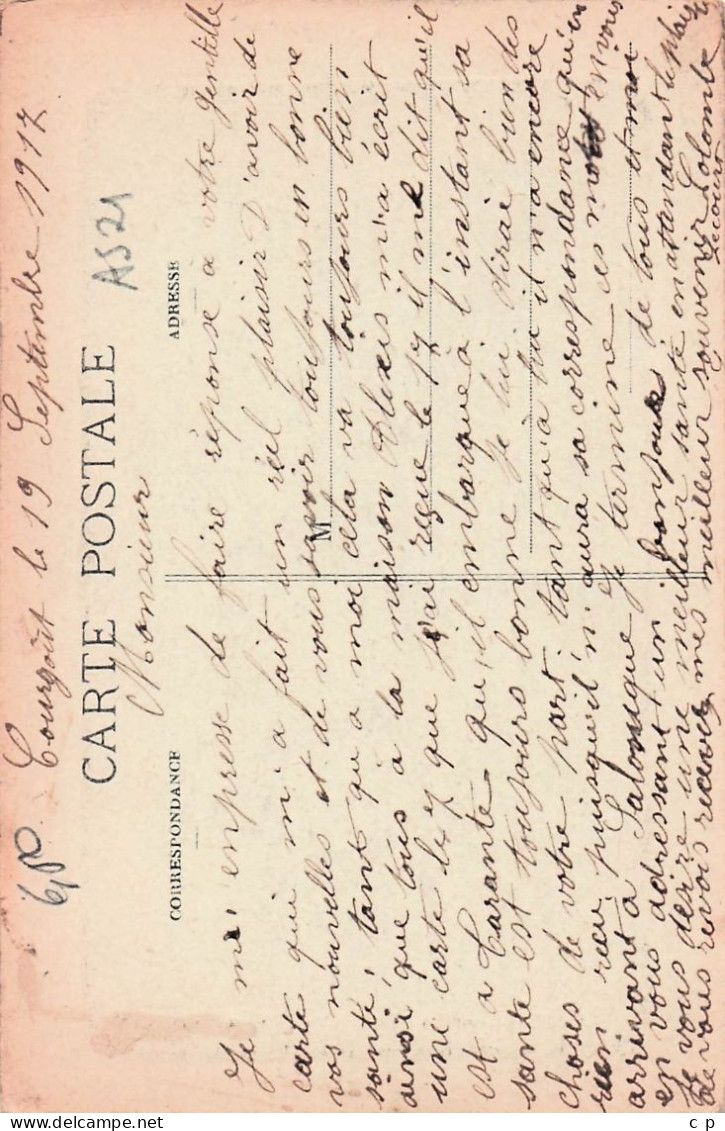 6,00
Courgoût le 19 Septembre 1917
CARTE POSTALE
AS21
Monsieur
CORRESPONDANCE
ADRESSE
M
Je m'enpresse de faire réponse à votre gentille
carte qui m'a fait un réel plaisir D'avoir de
vos nouvelles et de vous savoir toujours en bonne
santé, tant qu'a moi cela va toujours bien
ainsi que tous à la maison Alexis m'a écrit
une carte le 7 que j'ai reçue le 17 il me dit qu'il
est a Tarante qu'il embarque à l'instant sa
santé est toujours bonne je lui dirai bien des
choses de votre part; tant qu'a lui il n'a encore
rien reçu puisqu'il n'aura sa correspondance qu'en
arrivant a Salonique Je termine ces mots en vous
en vous adressant un bonjour de tous et moi
Je vous désire une meilleur santé en attandant le plaisir
de vous revoir recevez mes meilleur souvenir Colombe